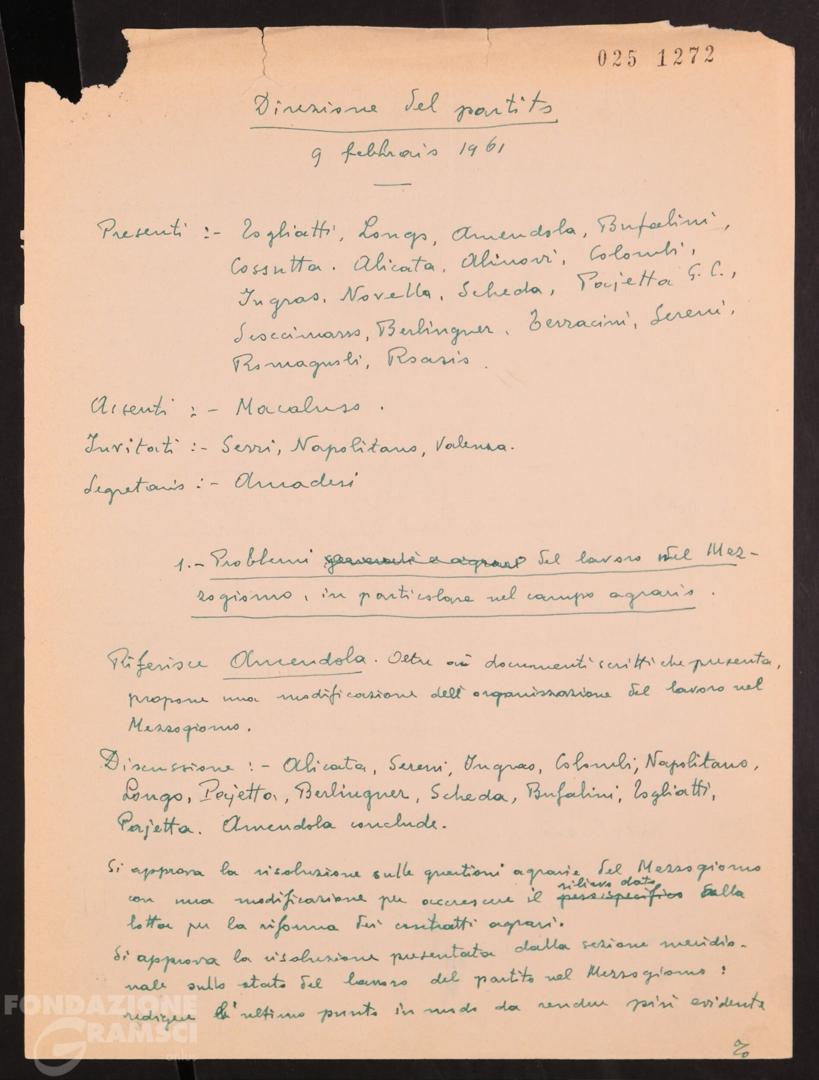 025 1272
Direzione del partito
9 febbraio 1961
Presenti :- Togliatti, Longo, Amendola, Bufalini,
Cossutta. Alicata, Alinovi, Colombi,
Ingrao, Novella, Scheda, Pajetta G. C.,
Scoccimarro, Berlinguer, Terracini, Sereni,
Romagnoli, Roasio.
Assenti :- Macaluso.
Invitati :- Serri, Napolitano, Valenza.
Segretario :- Amadesi
1.- Problemi generali e agrari del lavoro nel Mez-
zogiorno, in particolare nel campo agrario.
Riferisce Amendola. Oltre ai documenti scritti che presenta,
propone una modificazione dell'organizzazione del lavoro nel
Mezzogiorno.
Discussione :- Alicata, Sereni, Ingrao, Colombi, Napolitano,
Longo, Pajetta, Berlinguer, Scheda, Bufalini, Togliatti,
Pajetta. Amendola conclude.
Si approva la risoluzione sulle questioni agrarie del Mezzogiorno
rilievo dato
con una modificazione per accrescere il peso specifico alla
lotta per la riforma dei contratti agrari.
Si approva la risoluzione presentata dalla sezione meridio-
nale sullo stato del lavoro del partito nel Mezzogiorno:
redigere l'ultimo punto in modo da rendere più evidente
FONDAZIONE
GRAMSCI
onlus